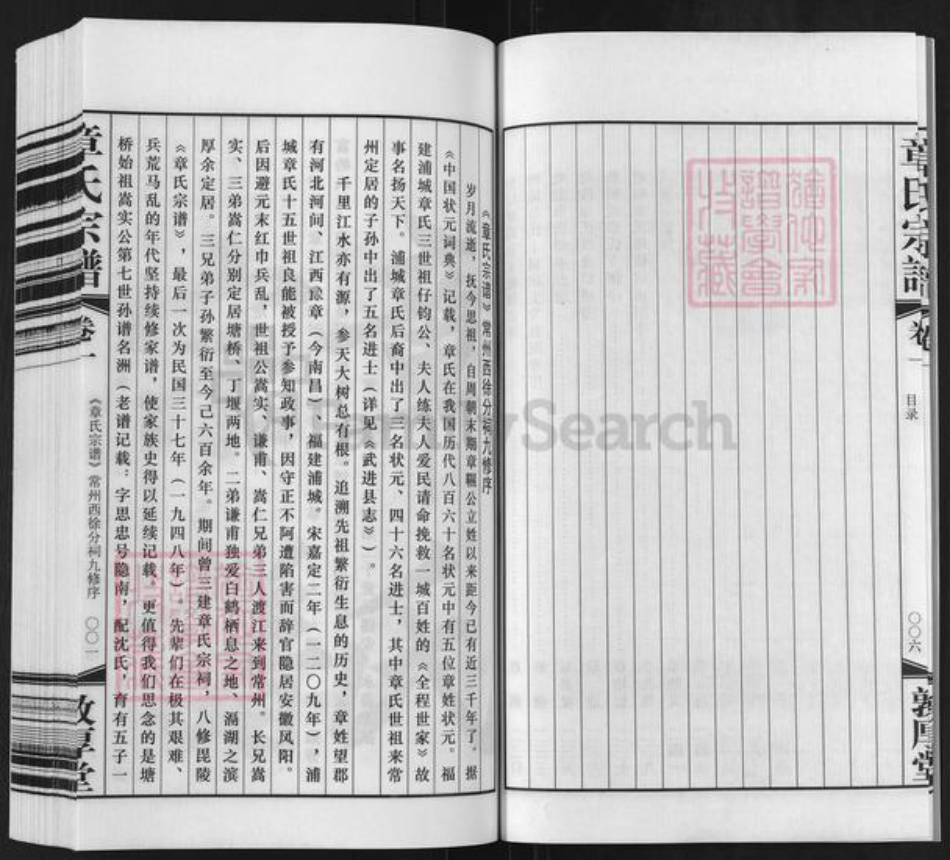 章氏宗谱
卷一
目录
〇〇六
敦厚堂
《章氏宗谱》常州西徐分祠九修序
岁月流逝，抚今思祖，自周朝末期章韅公立姓以来距今已有近三千年了。据
《中国状元词典》记载，章氏在我国历代八百六十名状元中有五位章姓状元。福
建浦城章氏三世祖仔钧公、夫人练夫人爱民请命挽救一城百姓的《全程世家》故
事名扬天下。浦城章氏后裔中出了三名状元、四十六名进士，其中章氏世祖来常
州定居的子孙中出了五名进士（详见《武进县志》）。
千里江水亦有源，参天大树总有根。追溯先祖繁衍生息的历史，章姓望郡
有河北河间、江西豫章（今南昌）、福建浦城。宋嘉定二年（一二〇九年），浦
城章氏十五世祖良能被授予参知政事，因守正不阿遭陷害而辞官隐居安徽凤阳。
后因避元末红巾兵乱，世祖公嵩实、谦甫、嵩仁兄弟三人渡江来到常州。长兄嵩
实、三弟嵩仁分别定居塘桥、丁堰两地。二弟谦甫独爱白鹤栖息之地、滆湖之滨
厚余定居。三兄弟子孙繁衍至今己六百余年。期间曾三建章氏宗祠，八修毘陵
《章氏宗谱》，最后一次为民国三十七年（一九四八年）。先辈们在极其艰难、
兵荒马乱的年代坚持续修家谱，使家族史得以延续记载，更值得我们思念的是塘
桥始祖嵩实公第七世孙谱名洲（老谱记载：字思忠号隐南，配沈氏，育有五子一
章氏宗谱
卷一
《章氏宗谱》常州西徐分祠九修序
〇〇一
敦厚堂
FamilySearch